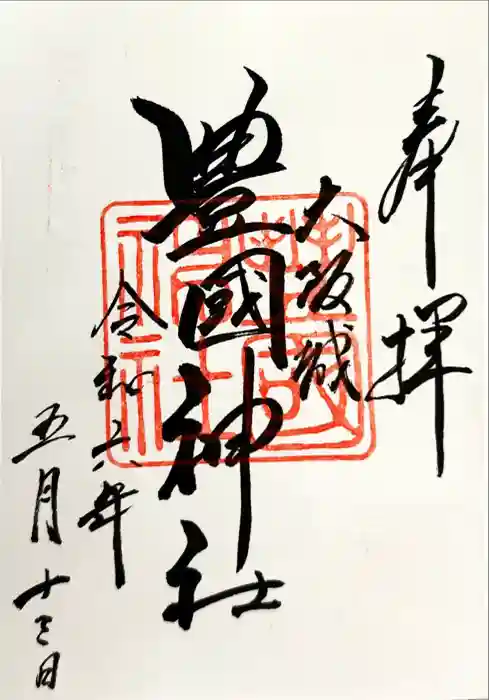 奉拝
大阪城
豊國神社
令和六年
五月十三日